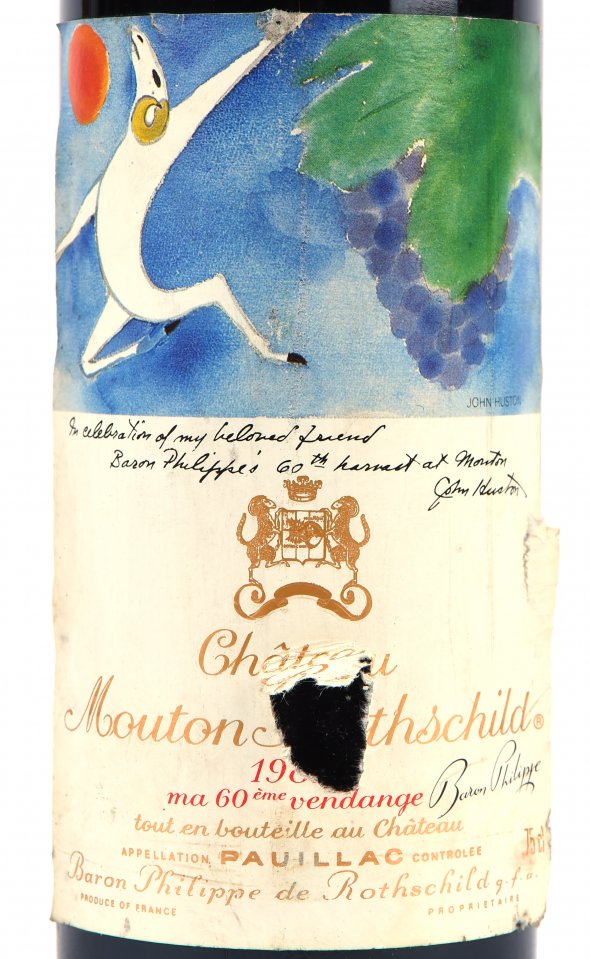 JOHN HUSTON
In celebration of my beloved friend
Baron Philippe's 60th harvest at Mouton
John Huston
Mouton
19
ma 60ème vendange Baron Philippe
tout en bouteille au Château
APPELLATION PAUILLAC CONTROLÉE
75 cl
Baron Philippe de Rothschild g.f.a.
PRODUCE OF FRANCE PROPRIÉTAIRE